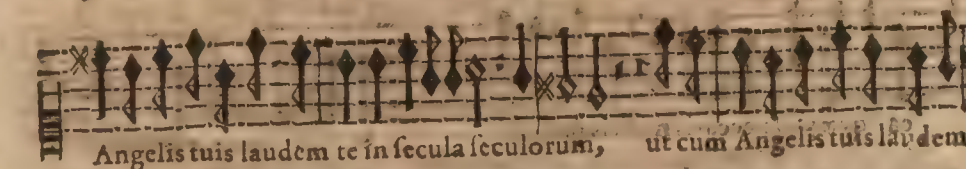 Angelis tuis laudem te in ſecula ſeculorum, ut cum Angelis tuis laudem